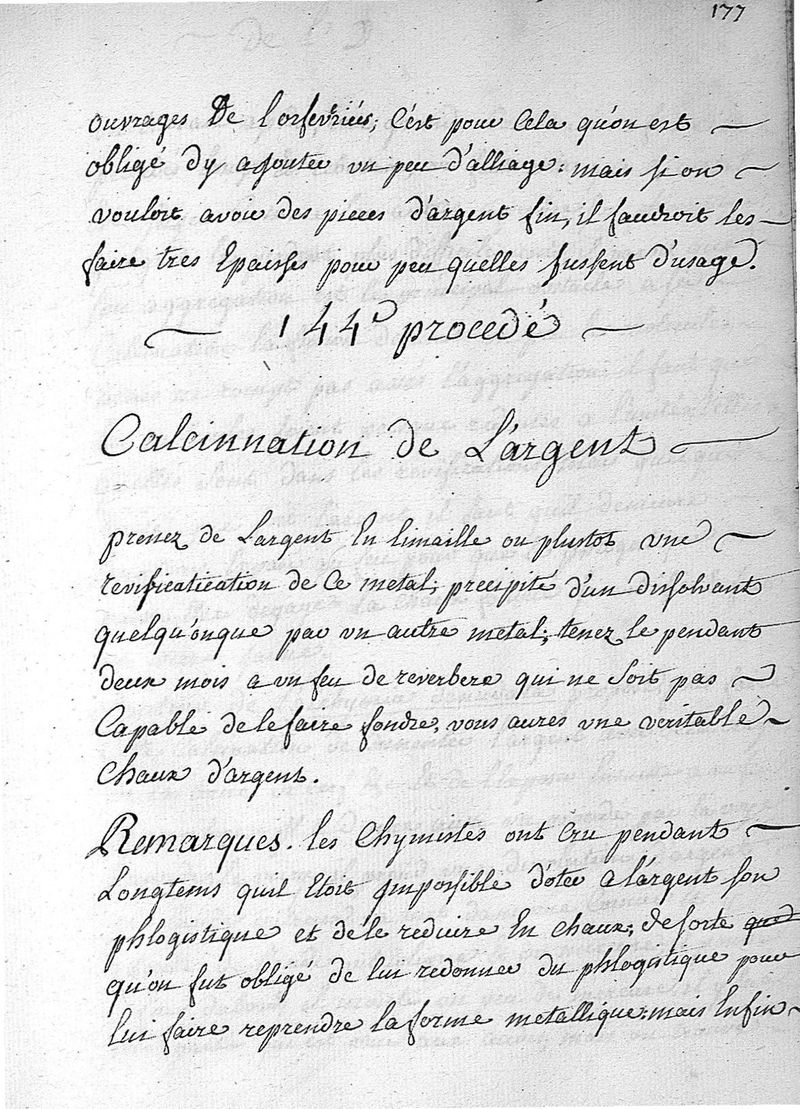 177
ouvrages De l'orfevriés; C'est pour Cela qu'on est
obligé d'y ajouter un peu d'alliage. mais si on
vouloit avoir des pieces d'argent fin, il faudroit les
faire tres Epaisses pour peu quelles fussent d'usage.
144e procedé
Calcinnation de L'argent
prenez de L'argent En limaille ou plustot vne
revificatication de Ce metal; precipité d'un dissolvant
quelqu'onque par vn autre metal; tenez le pendant
deux mois a vn feu de reverbere qui ne soit pas
Capable de le faire fondre, vous aures vne veritable
Chaux d'argent.
Remarques. les Chymistes ont Cru pendant
Longtems quil Etoit Impossible d'oter a l'argent son
phlogistique et de le reduire En chaux; de sorte
qu'on fut obligé de lui redonner du phlogistique pour
lui faire reprendre la forme metallique: mais Enfin